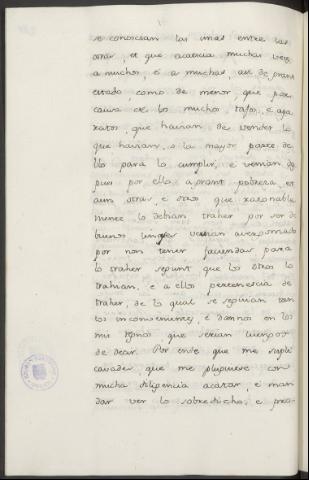 se conoscian las unas entre las
otras, et que acaecia muchas veces
a muchos, e a muchas, asi de grant
estado, como de menor, que por
causa de los muchos tafos, e apa
ratos, que havian de vender lo
que havian, o la mayor parte de
llo para lo cumplir, e venian des
pues por ello a grant pobreza, et
aun otras, e otros que razonable
mente lo debian traher por ser de
buenos linages venian avergonzados
por non tener faciendas para
lo traher segunt que los otros lo
trahian, e a ellos pertenescia de
traher, de lo qual se seguian tan
tos inconvenientes, e dannos en los
mis regnos que serian luengos
de decir. Por ende que me supli
cavades, que me pluguiese con
mucha diligencia acatar, e man
dar ver lo sobredicho, e pro-